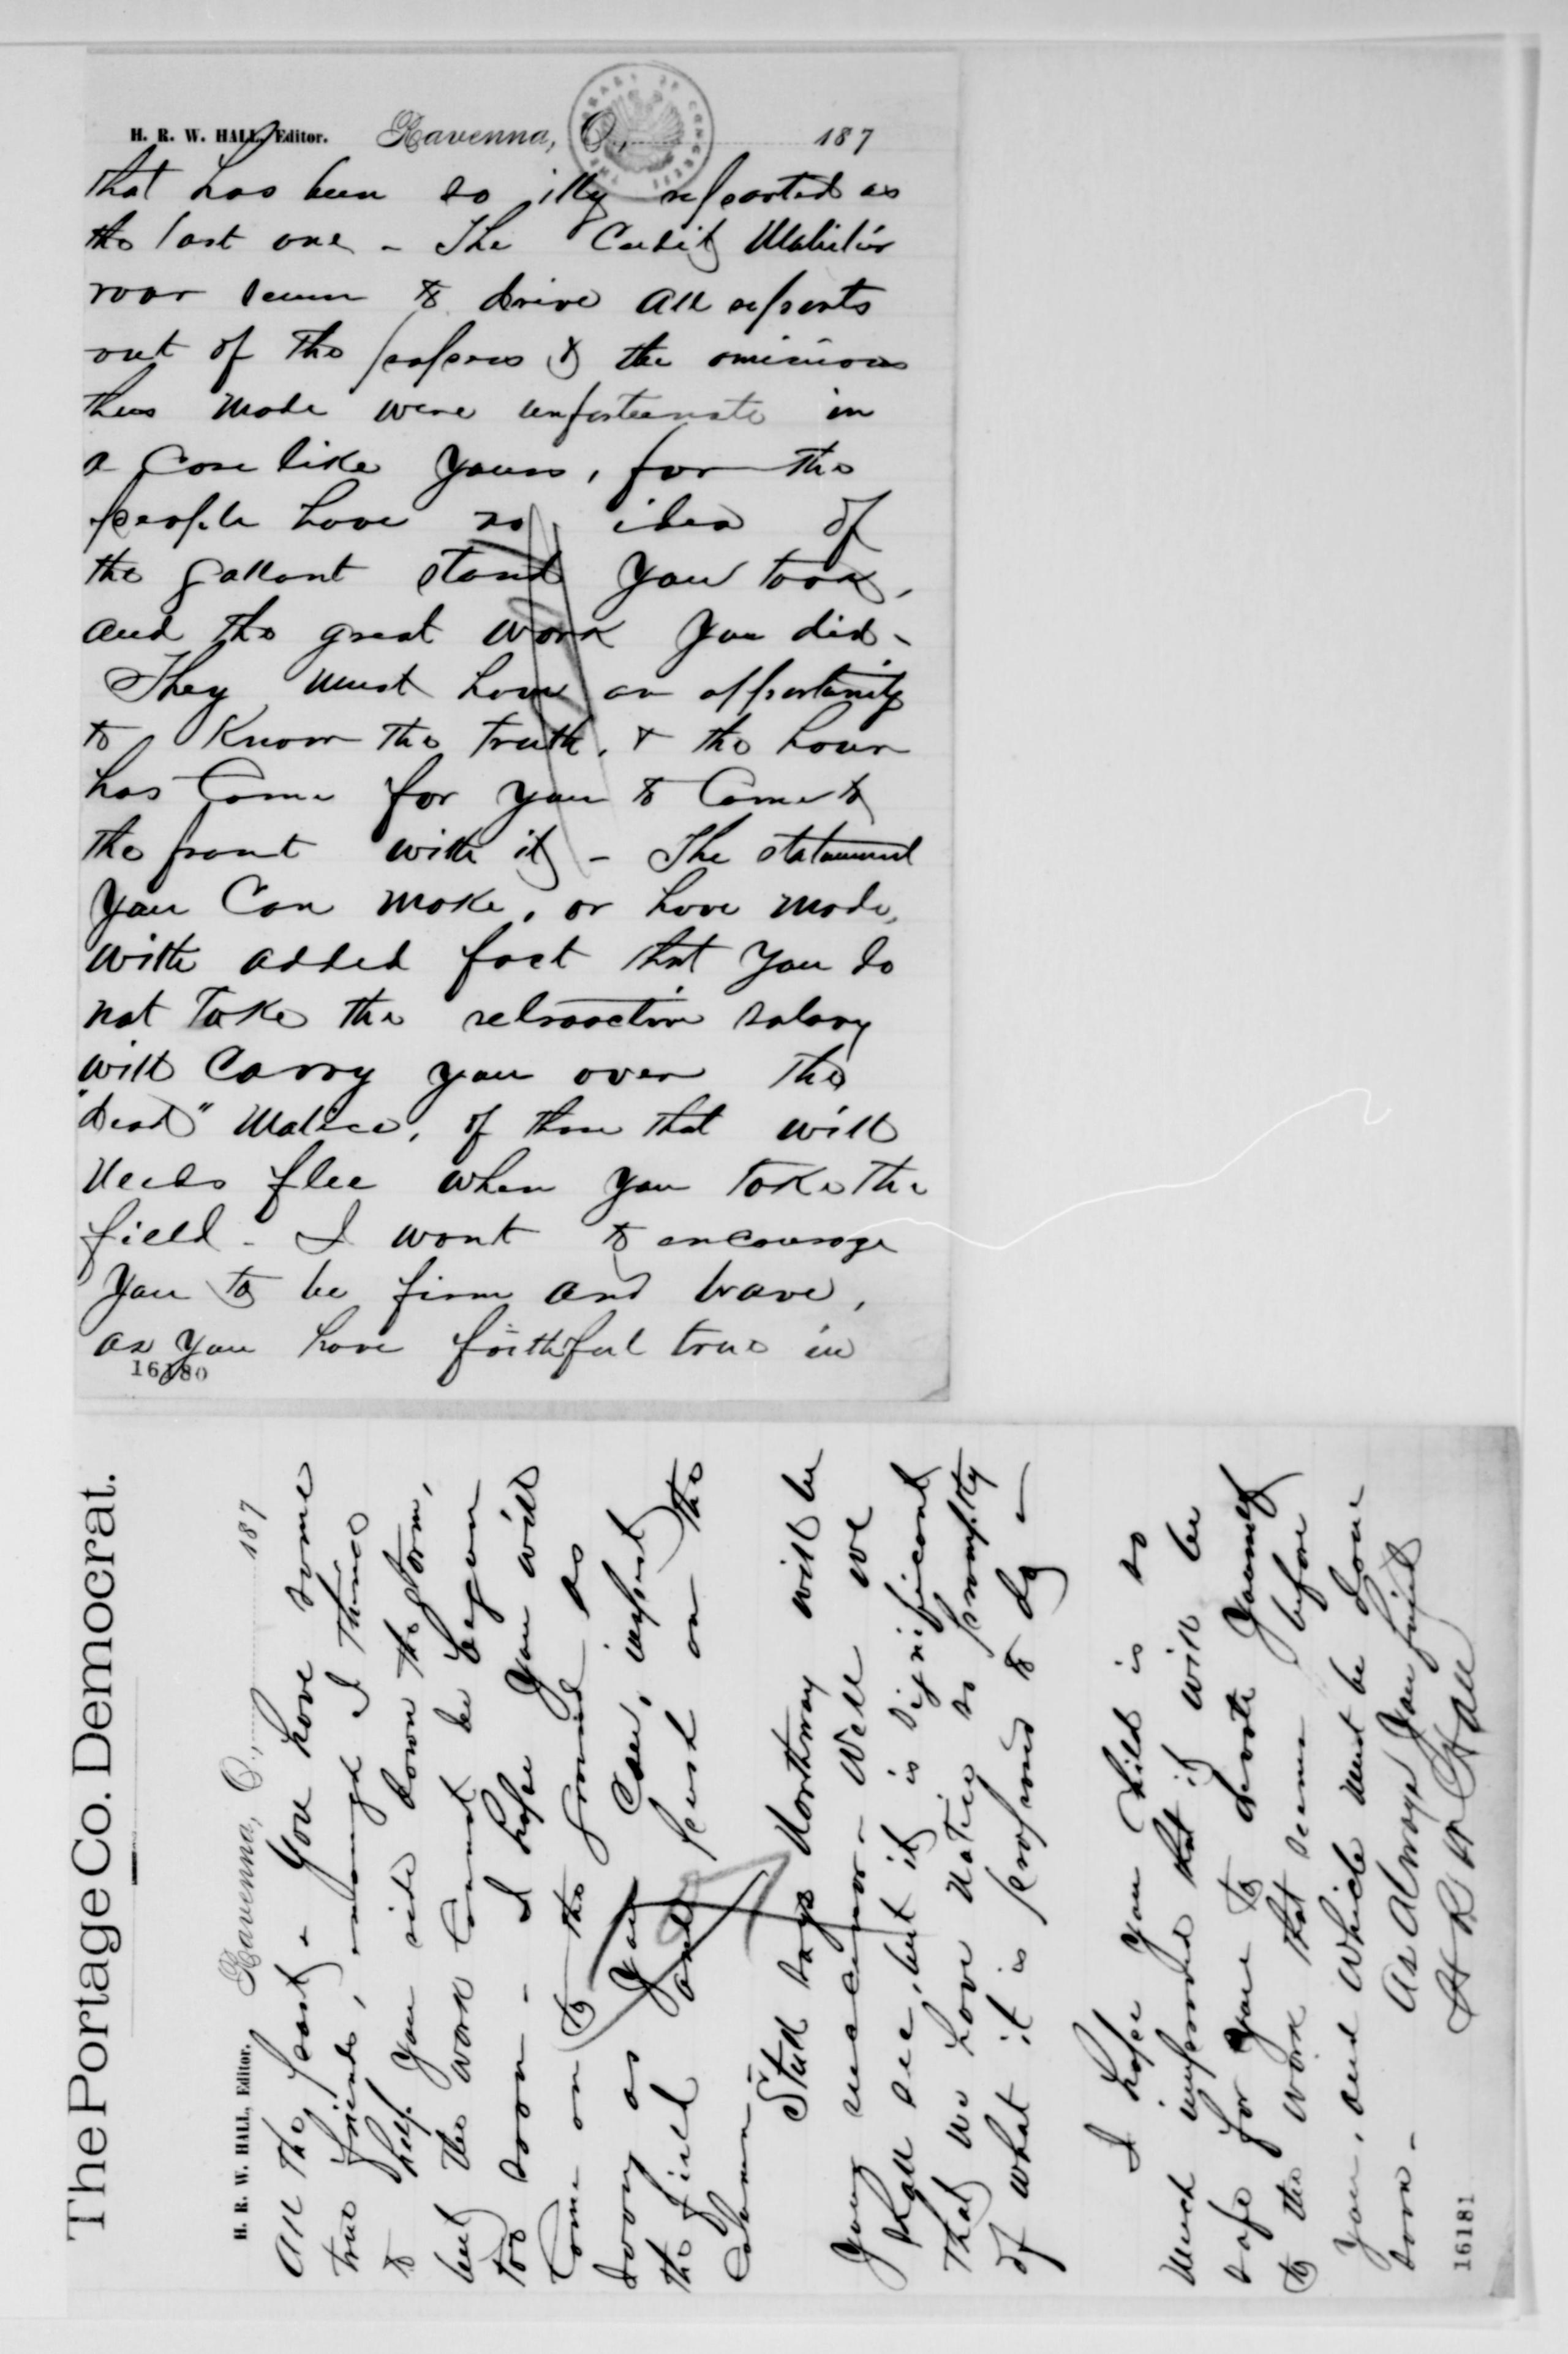 H. R. W. HALL, Editor. Ravenna, O., 187
that has been so illy reported as
the last one - The Credit Mobilier
roar seem to drive all reports
out of the papers & the omissions
thus made were unfortunate in
a case like yours, for the
people have no idea of
the gallant stand you took,
and the great work you did -
They must have an opportunity
to know the truth, & the hour
has come for you to come to
the front with it - The statement
you can make, or have made,
with added fact that you do
not take the retroactive salary
will carry you over the
"dead" malice, of those that will
needs flee when you take the
field - I want to encourage
you to be firm and brave,
as you have faithful true in
16180
The Portage Co. Democrat.
H. R. W. HALL, Editor. Ravenna, O., 187
all the past - You have some
true friends, enough I think
to help you ride down the storm,
but the work cannot be begun
too soon - I hope you will
come on to the ground as
soon as you can, inspect
the field and put on the
Stull says Northway will be
your successor - Well we
shall see, but it is significant
that we have notice so promptly
of what it is proposed to do -
I hope your child is so
much improved that it will be
safe for you to devote yourself
to the work that seems before
you, and which must be done
soon -
As Always Your friend
H R W Hall
16181